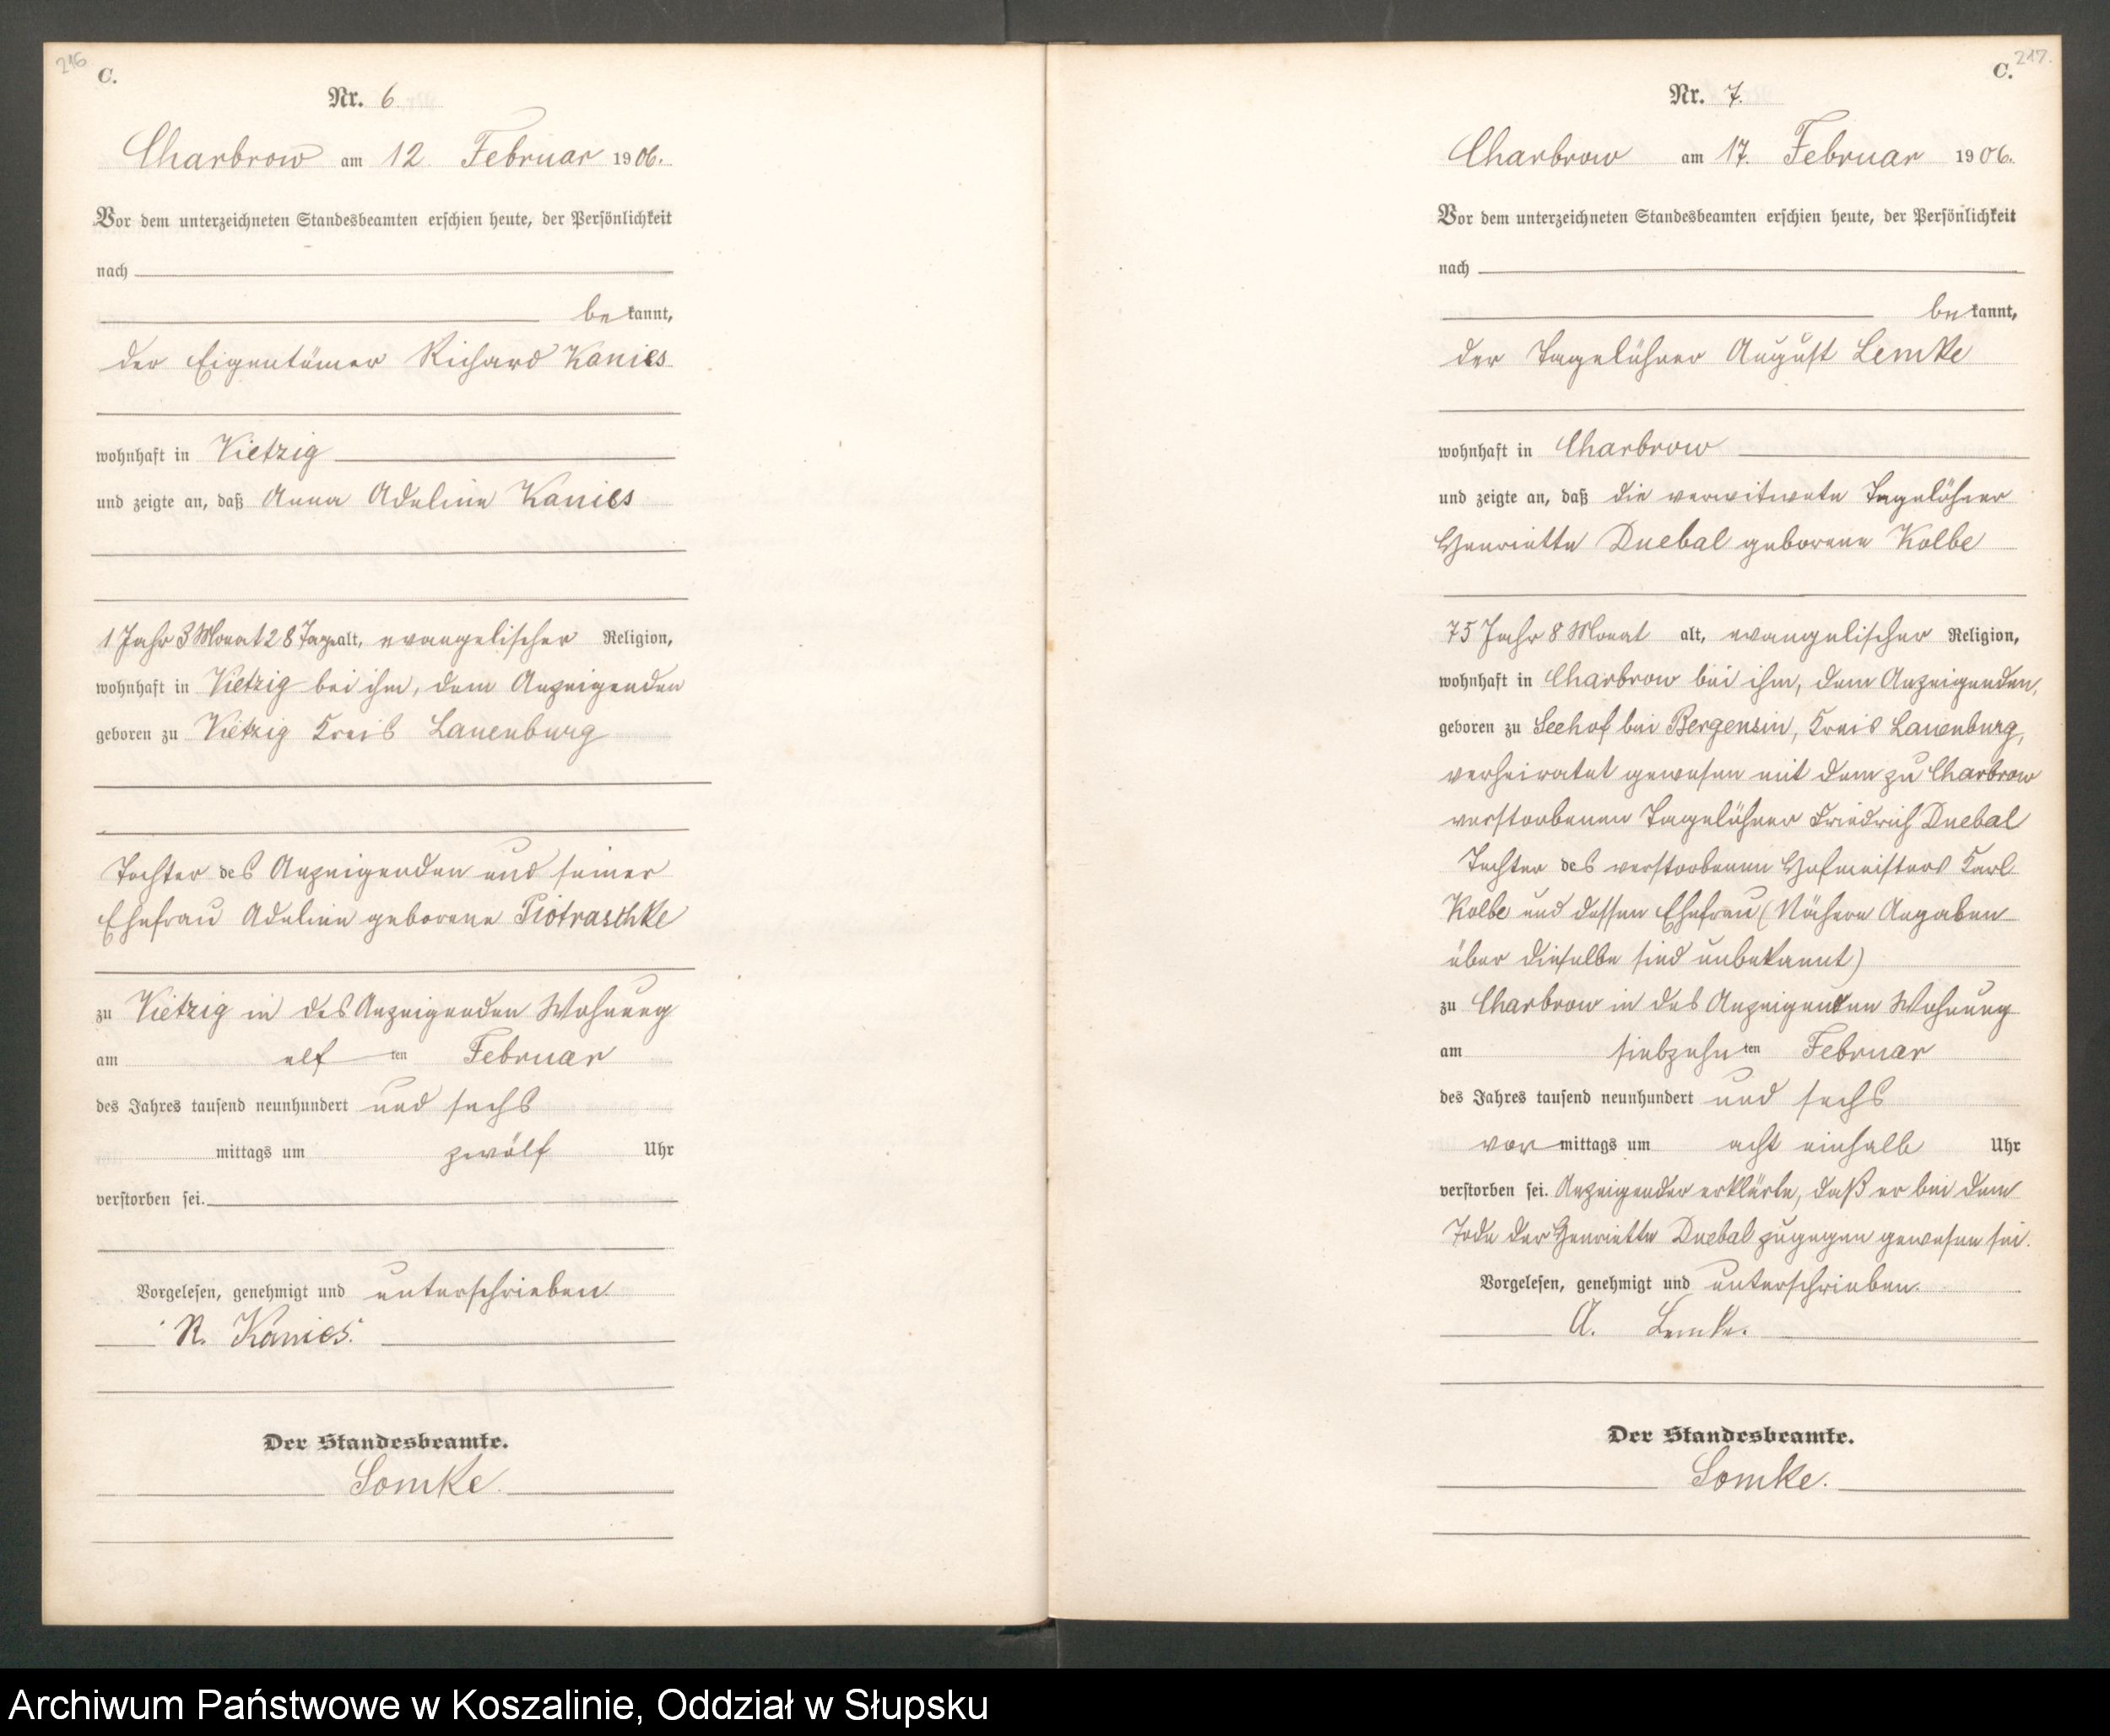 216
C.
Nr. 6
Charbrow am 12. Februar 1906.
Vor dem unterzeichneten Standesbeamten erschien heute, der Persönlichkeit
nach
be kannt,
der Eigentümer Richard Kanies
wohnhaft in Vietzig
und zeigte an, daß Anna Adeline Kanies
1 Jahr 3 Monat 28 Tage alt, evangelischer Religion,
wohnhaft in Vietzig bei ihm, dem Anzeigenden
geboren zu Vietzig Kreis Lauenburg
Tochter des Anzeigenden und seiner
Ehefrau Adeline geborene Piotraschke
zu Vietzig in des Anzeigenden Wohnung
am elf ten Februar
des Jahres tausend neunhundert und sechs
mittags um zwölf Uhr
verstorben sei.
Vorgelesen, genehmigt und unterschrieben
R. Kanies.
Der Standesbeamte.
Lomke.
217.
C.
Nr. 7.
Charbrow am 17. Februar 1906.
Vor dem unterzeichneten Standesbeamten erschien heute, der Persönlichkeit
nach
be kannt,
der Tagelöhner August Lemke
wohnhaft in Charbrow
und zeigte an, daß die verwitwete Tagelöhner
Henriette Duebal geborene Kolbe
75 Jahr 8 Monat alt, evangelischer Religion,
wohnhaft in Charbrow bei ihm, dem Anzeigenden,
geboren zu Seehof bei Bergensin, Kreis Lauenburg,
verheiratet gewesen mit dem zu Charbrow
verstorbenen Tagelöhner Friedrich Duebal
Tochter des verstorbenen Hofmeisters Karl
Kolbe und dessen Ehefrau (Nähere Angaben
über dieselbe sind unbekannt)
zu Charbrow in des Anzeigenden Wohnung
am siebzehn ten Februar
des Jahres tausend neunhundert und sechs
vor mittags um acht einhalb Uhr
verstorben sei. Anzeigender erklärte, daß er bei dem
Tode der Henriette Duebal zugegen gewesen sei.
Vorgelesen, genehmigt und unterschrieben.
A. Lemke.
Der Standesbeamte.
Lomke.
Archiwum Państwowe w Koszalinie, Oddział w Słupsku